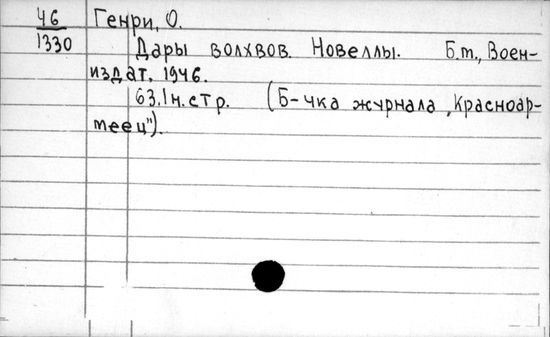 46 Генри, О.
1330 Дары волхвов. Новеллы. Б.м., Воен-
издат, 1946.
63.1н.стр. (Б-чка журнала „Красноар-
меец").